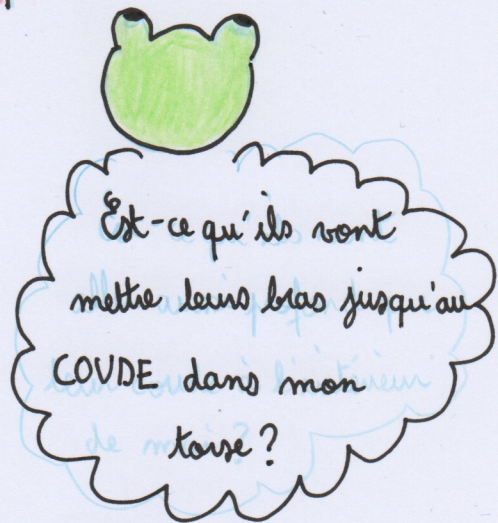 Est-ce qu'ils vont
mettre leurs bras jusqu'au
COUDE dans mon
torse ?